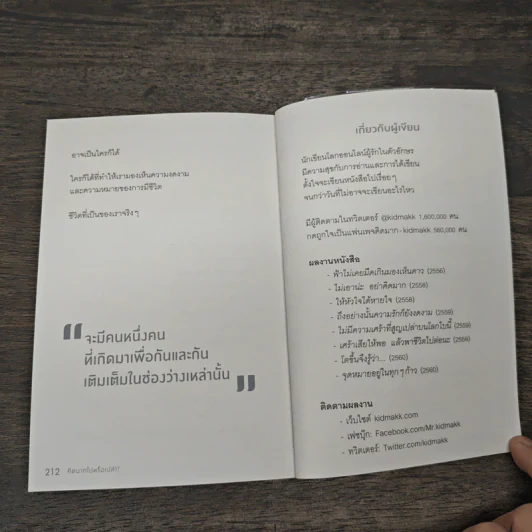 อาจเป็นใครก็ได้
ใครก็ได้ที่ทำให้เรามองเห็นความงดงาม
และความหมายของการมีชีวิต
ชีวิตที่เป็นของเราจริงๆ
“จะมีคนหนึ่งคน
ที่เกิดมาเพื่อกันและกัน
เติมเต็มในช่องว่างเหล่านั้น”
212 คิดมากไปหรือเปล่า?
เกี่ยวกับผู้เขียน
นักเขียนโลกออนไลน์ผู้รักในตัวอักษร
มีความสุขกับการอ่านและการได้เขียน
ตั้งใจจะเขียนหนังสือไปเรื่อยๆ
จนกว่าวันที่ไม่อาจจะเขียนอะไรไหว
มีผู้ติดตามในทวิตเตอร์ @kidmakk 1,600,000 คน
กดถูกใจเป็นแฟนเพจคิดมาก - kidmakk 560,000 คน
ผลงานหนังสือ
- ฟ้าไม่เคยมืดเกินมองเห็นดาว (2556)
- ไม่เอาน่ะ อย่าคิดมาก (2558)
- ให้หัวใจได้หายใจ (2558)
- ถึงอย่างนั้นความรักก็ยังงดงาม (2559)
- ไม่มีความเศร้าที่สูญเปล่าบนโลกใบนี้ (2559)
- เศร้าเสียให้พอ แล้วพาชีวิตไปต่อนะ (2559)
- โตขึ้นจึงรู้ว่า... (2560)
- จุดหมายอยู่ในทุกๆ ก้าว (2560)
ติดตามผลงาน
- เว็บไซต์ kidmakk.com
- เฟซบุ๊ก: Facebook.com/Mr.kidmakk
- ทวิตเตอร์: Twitter.com/kidmakk